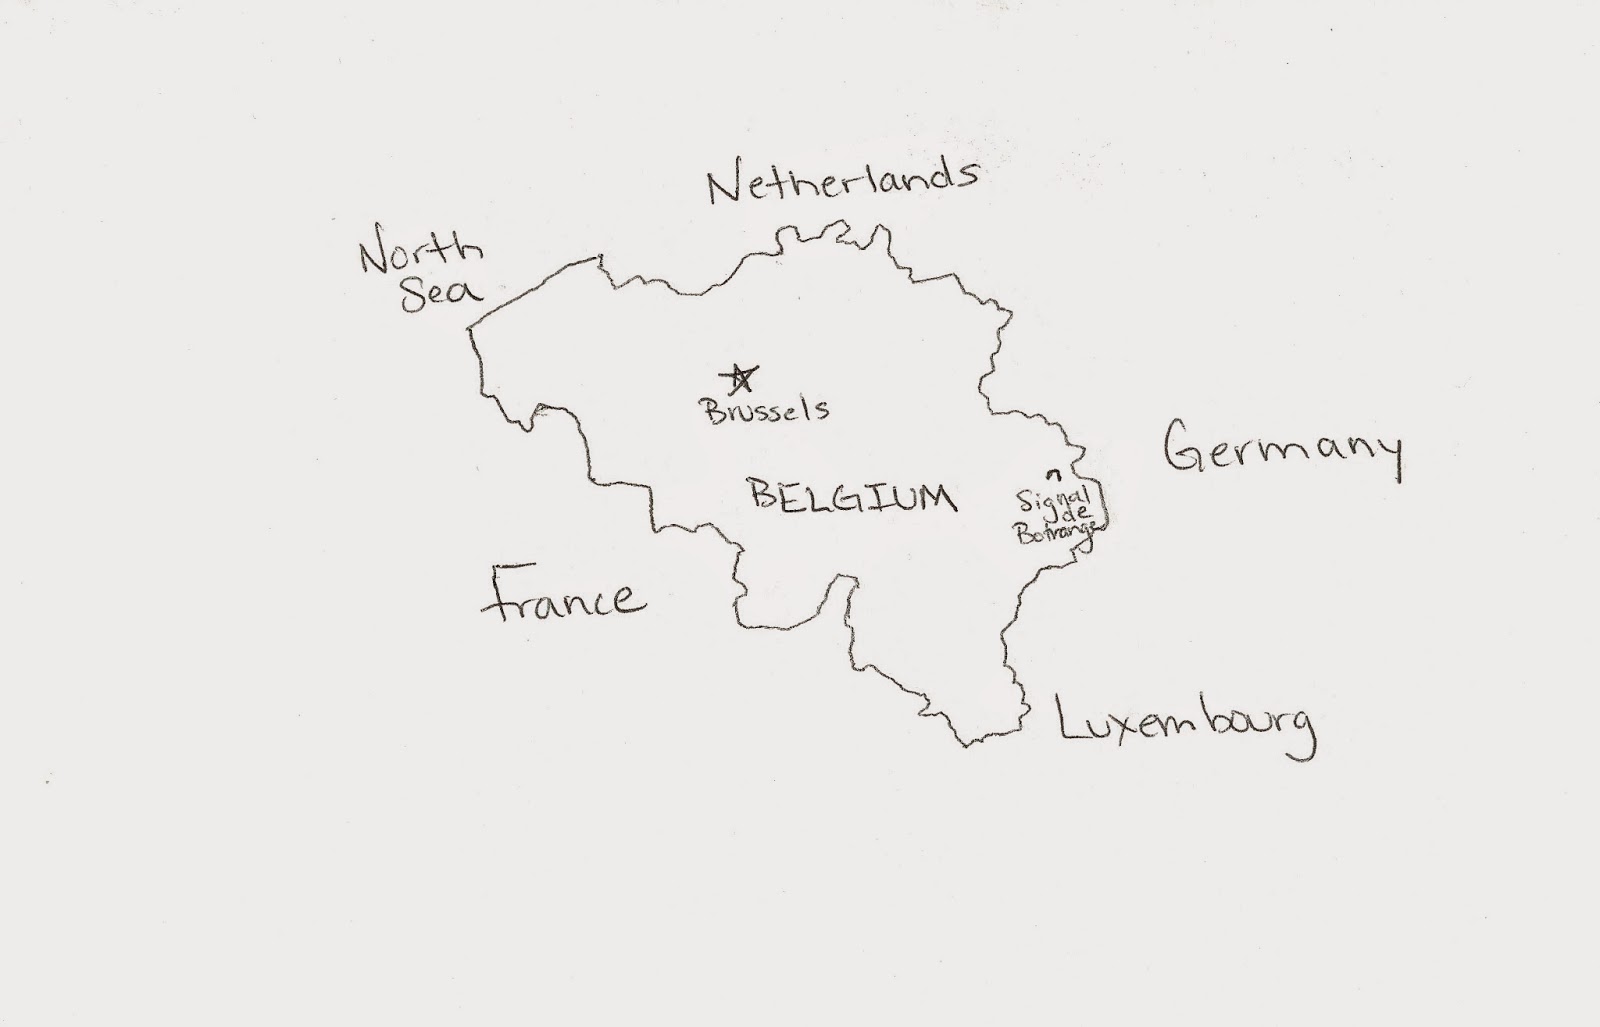 Netherlands
North
Sea
Brussels
Germany
BELGIUM
Signal
de
Botrange
France
Luxembourg